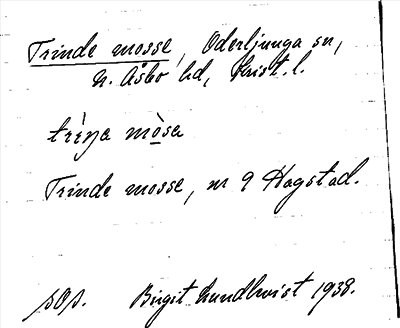 Trinde mosse, Oderljunga sn,
n. Åsbo hd, Krist. l.
trìṇa mòsa
Trinde mosse, nr 9 Hagstad.
sOs. Birgit Lundkvist 1938.